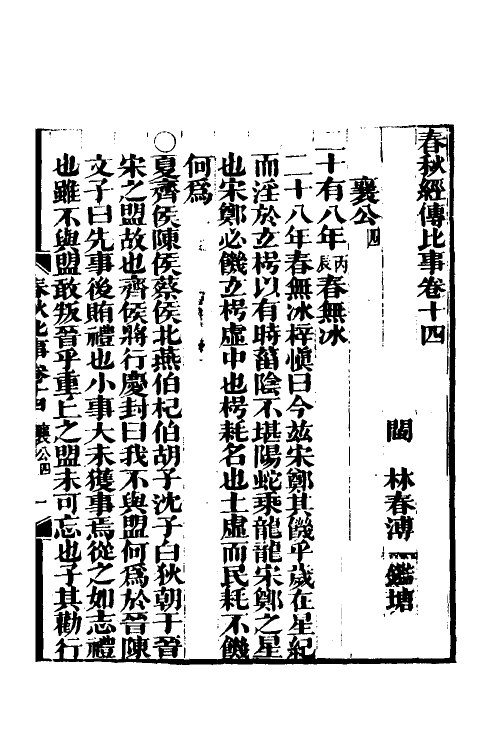 春秋經傳比事卷十四
閩　林春溥　鑑塘
襄公四
二十有八年丙辰春無冰
二十八年春無冰梓愼曰今茲宋鄭其饑乎歲在星紀
而淫於立枵以有時菑陰不堪陽蛇乘龍龍宋鄭之星
也宋鄭必饑立枵虛中也枵耗名也土虛而民耗不饑
何爲
○夏齊侯陳侯蔡侯北燕伯杞伯胡子沈子白狄朝于晉
宋之盟故也齊侯將行慶封曰我不與盟何爲於晉陳
文子曰先事後賄禮也小事大未獲事焉從之如志禮
也雖不與盟敢叛晉乎重丘之盟未可忘也子其勸行
春秋比事卷十四　襄公四　一